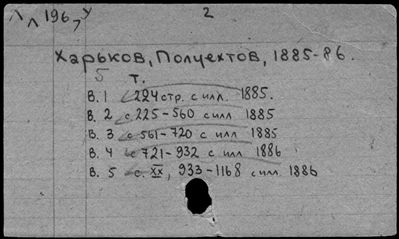 196 2
Харьков, Полуехтов, 1885-86.
5 т.
В. 1 224 стр. с илл. 1885.
В. 2 с 225-560 с илл 1885
В. 3 с 561-720 с илл 1885
В. 4 с 721-932 с илл 1886
В. 5 с. XX, 933-1168 с илл 1886